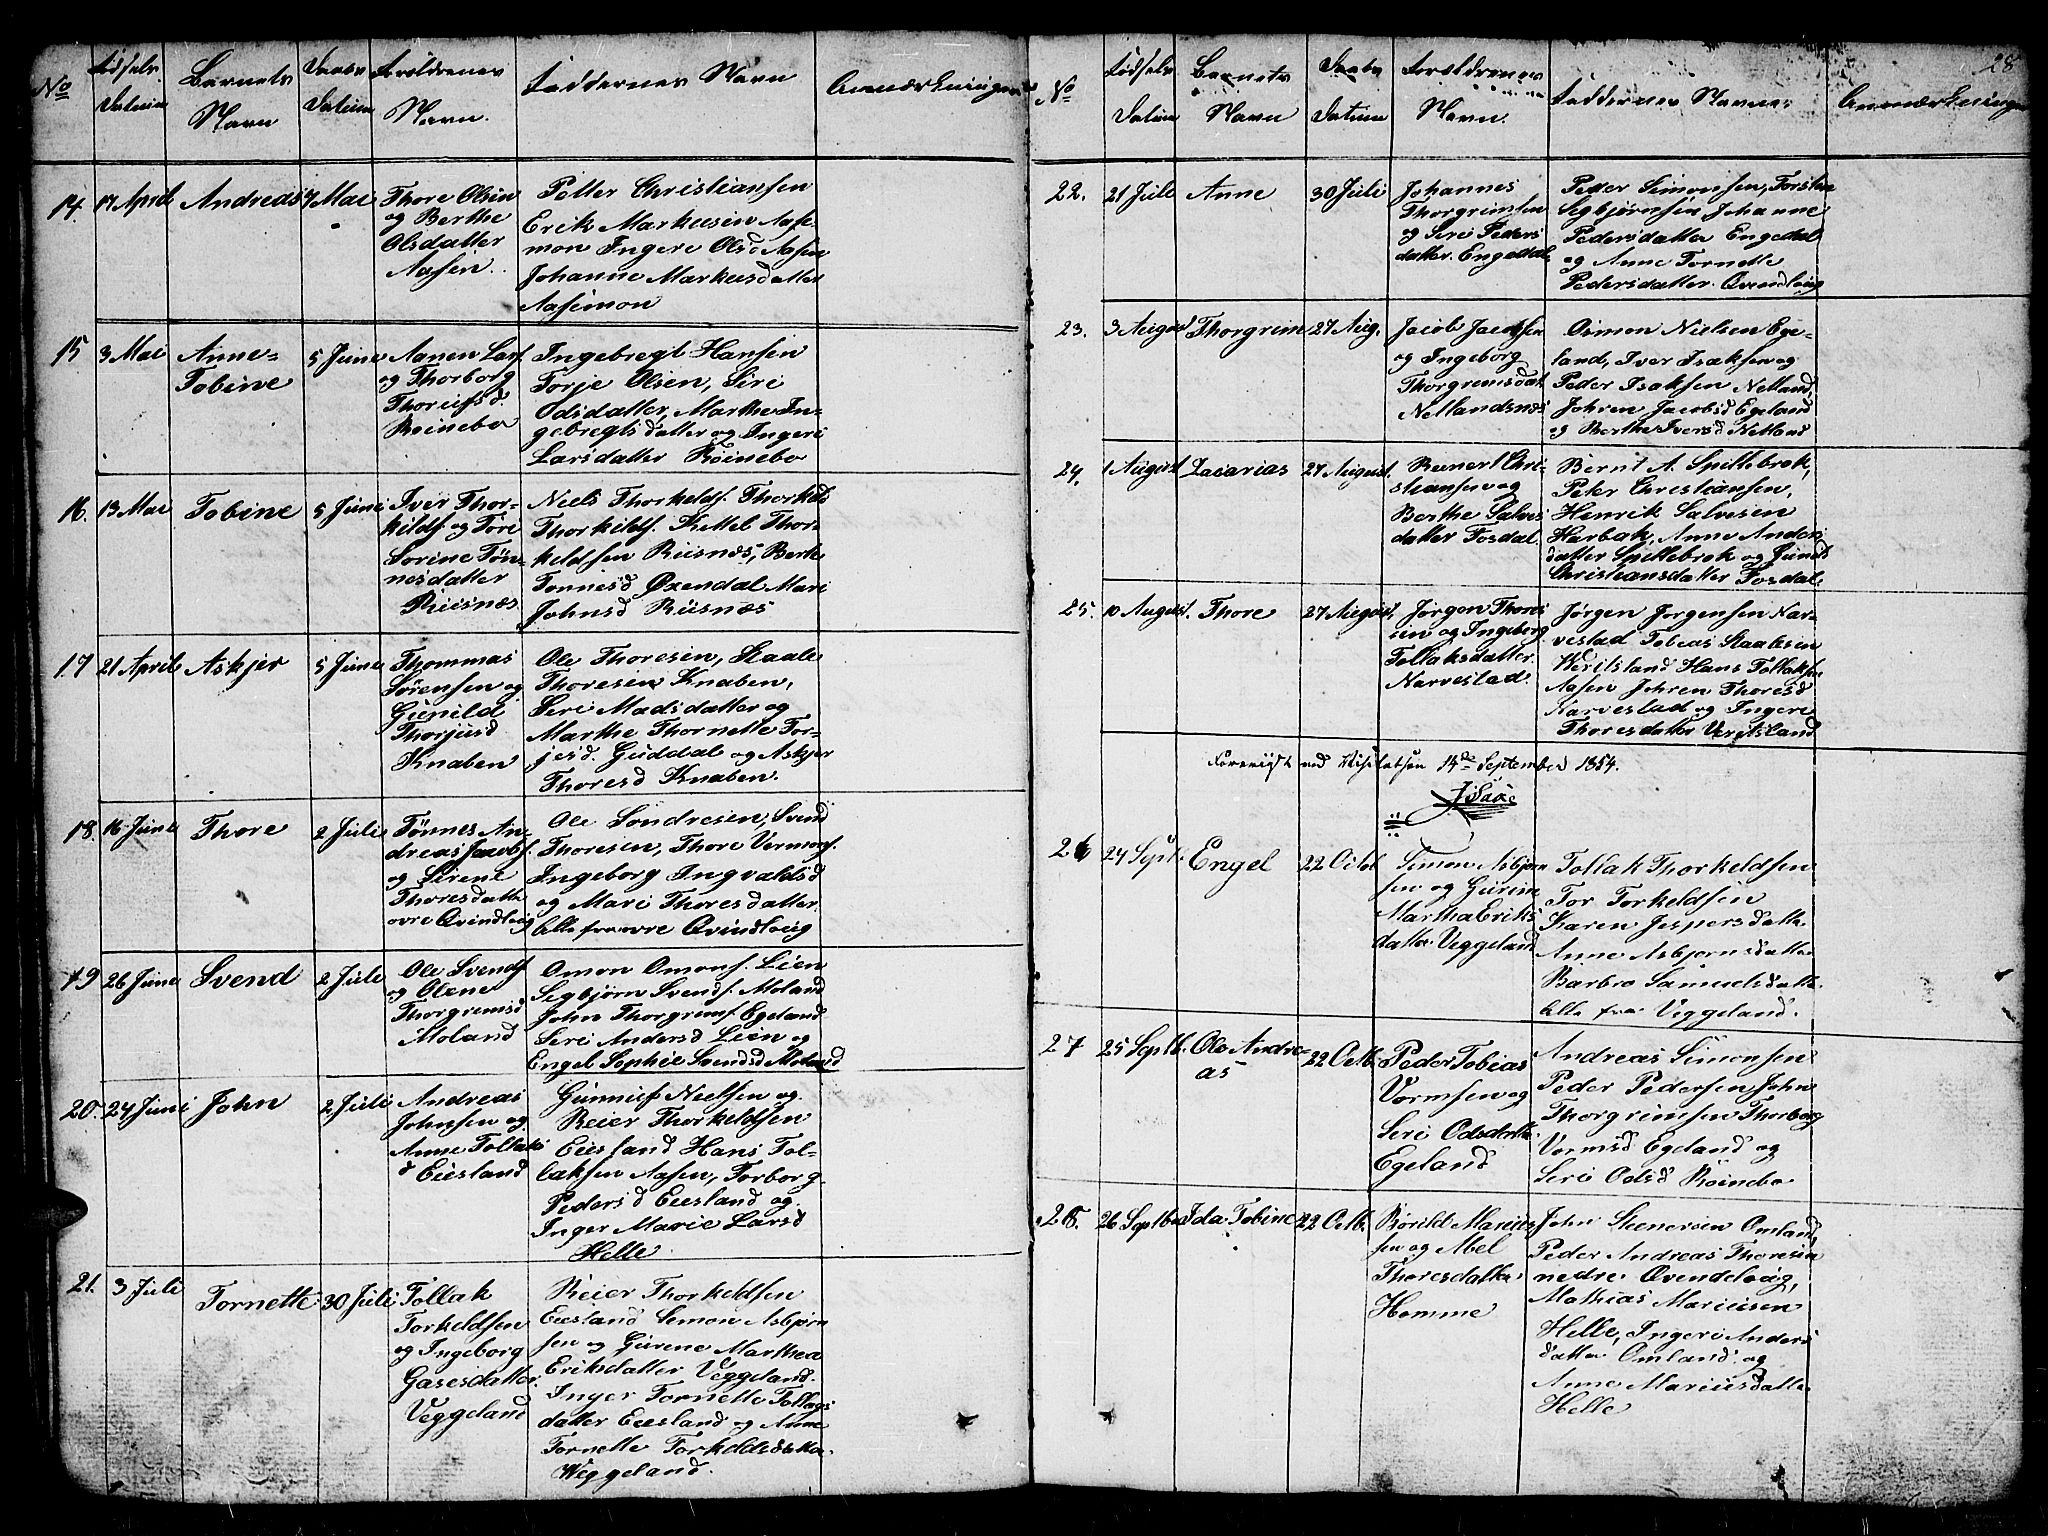 No
Fødsels
Datum
Barnets
Navn
Daabs
Datum
Forældrenes
Navn.
Faddernes Navn
Anmærkninger
14.
17 April
Andreas
7 Mai
Thore Olsen
og Berthe
Olsdatter
Aasen.
Petter Christiansen
Erik Markusen Aase-
mon Ingeri Olsd Aasen
Johanne Markusdatter
Aasimon
15
3 Mai
Anne-
Tobine
5 June
Aanen Lars.
og Thorborg
Thorufsd.
Roinebo
Ingebregt Hansen
Torje Olsen, Siri
Odsdatter, Marthe In-
gebregtsdatter og Ingeri
Larsdatter Röinebo
16.
13 Mai
Tobine
5 Juni
Iver Thor-
kildsf og Tore
Sorine Tøn-
nesdatter
Risnæs
Niels Thorkelds. Thorkel
Thorkildsf. Kittel Thor-
keldsen Risnæs, Berte
Tonnesd Oxendal Mari
Johnsd Risnæs
17
21 April
Askjer
5 June
Thommas
Sörensen og
Gunild
Thorjusd
Knaben
Ole Thoresen, Staale
Thoresen Knaben,
Seri Madsdatter og
Marthe Thornette Tor-
jesd. Guddal og Askjer
Thoresd Knaben.
18.
16 June
Thore
2 Juli
Tønnes An-
dreas Jacobs.
og Serene
Thoresdatte
ovre Qvindlaug
Ole Sondresen, Svend
Thoresen, Thore Vermors.
Ingeborg Ingvaldsd
og Mari Thoresdatter
Alle fra ovre Qvindlaug
19
26 June
Svend
2 Juli
Ole Svends
og Olene
Thorgremsd
Moland
Omon Omons. Lien
Segbjörn Svends. Moland
John Thorgrems. Egeland
Seri Andersd Lien og
Engel Sophie Svendsd Moland
20.
24 Juni
John
2 Juli
Andreas
Johnsen og
Anne Tollaks
d Eiesland
Gunnuf Neelsen og
Reier Thorkeldsen
Eiesland Hans Tol-
laksen Aasen, Torborg
Pedersd Eiesland og
Inger Marie Larsd
Helle
21.
3 Juli
Tornette
30 Juli
Tollak
Torkeldsen
og Ingeborg
Gasesdatter
Veggeland
Reier Thorkeldsen
Eiesland Semon Asbjørn
sen og Gurene Marthea
Eriksdatter Veggeland.
Inger Tornette Tollags
datter Eiesland og Anne
Tornette Torkeldsdatte.
Weggeland.
28
No
Fødsels
Datum
Barnets
Navn
Daabs
Datum
Forældrenes
Navn.
Faddernes Navne
Anmærkninger
22.
21 Juli
Anne
30 Juli
Johannes
Thorgrimsen
og Seri Peders
datter. Engedal
Peder Simonsen, Torsten
Segbjørnsen Johanne
Pedersdatter Engedal
og Anne Tornette
Pedersdatter. Qvendlaug
23.
3 August
Thorgrim
27 Aug.
Jacob Jacobsen
og Ingeborg
Thorgremsdat
Netlandsnes
Osmon Nielsen Ege-
land, Iver Isaksen og
Peder Isaksen Netland,
Johren Jacobsd Egeland
og Berthe Iversd Netland
24.
1 August
Zacarias
27 August.
Reinert Chri-
stiansen og
Berthe Salves
datter Fosdal.
Bernt A. Spettebrok,
Peter Christiansen,
Henrik Salvesen
Harbak, Anne Anders
datter Spettebrok og Juneds
Christiansdatter Fosdal.
25.
10 August.
Thore
27 August.
Jørgen Thores
sen og Ingeborg
Tollaksdatter.
Narvestad.
Jørgen Jørgensen Nar-
vestad Tobias Staalesen
Weritsland Hans Tollaksen
Aasen Johren Thoresd
Narvestad og Ingeri
Thoresdatter Veritsland
Foreviist ved Visitatsen 14de September 1854.
26
24 Sept.
Engel
22 Octob
Simon Asbjørn
sen og Gurine
Martha Eriks
datter Veggeland
Tollak Thorkeldsen
Tor Torkeldsen
Karen Jespersdatte
Anne Asbjornsdatte
Barbro Samuelsdatte.
Alle fra Veggeland.
27
25 Septb.
Ole Andre-
as
22 Octb.
Peder Tobias
Vormsen og
Seri Odsdatte.
Egeland
Andreas Simonsen
Peder Pedersen John
Thorgrimsen Thorborg
Vormsd Egeland og
Seri Odsd Röinebo
28.
26 Septbr
Ida Tobine
22 Octb.
Roreld Marius
sen og Abel
Thoresdatter
Homme
John Stenersen Omland,
Peder Andreas Thoresen
nedre Qvendelaug,
Mathias Mariusen
Helle, Ingeri Anders
datter Omland og
Anne Mariusdatte
Helle